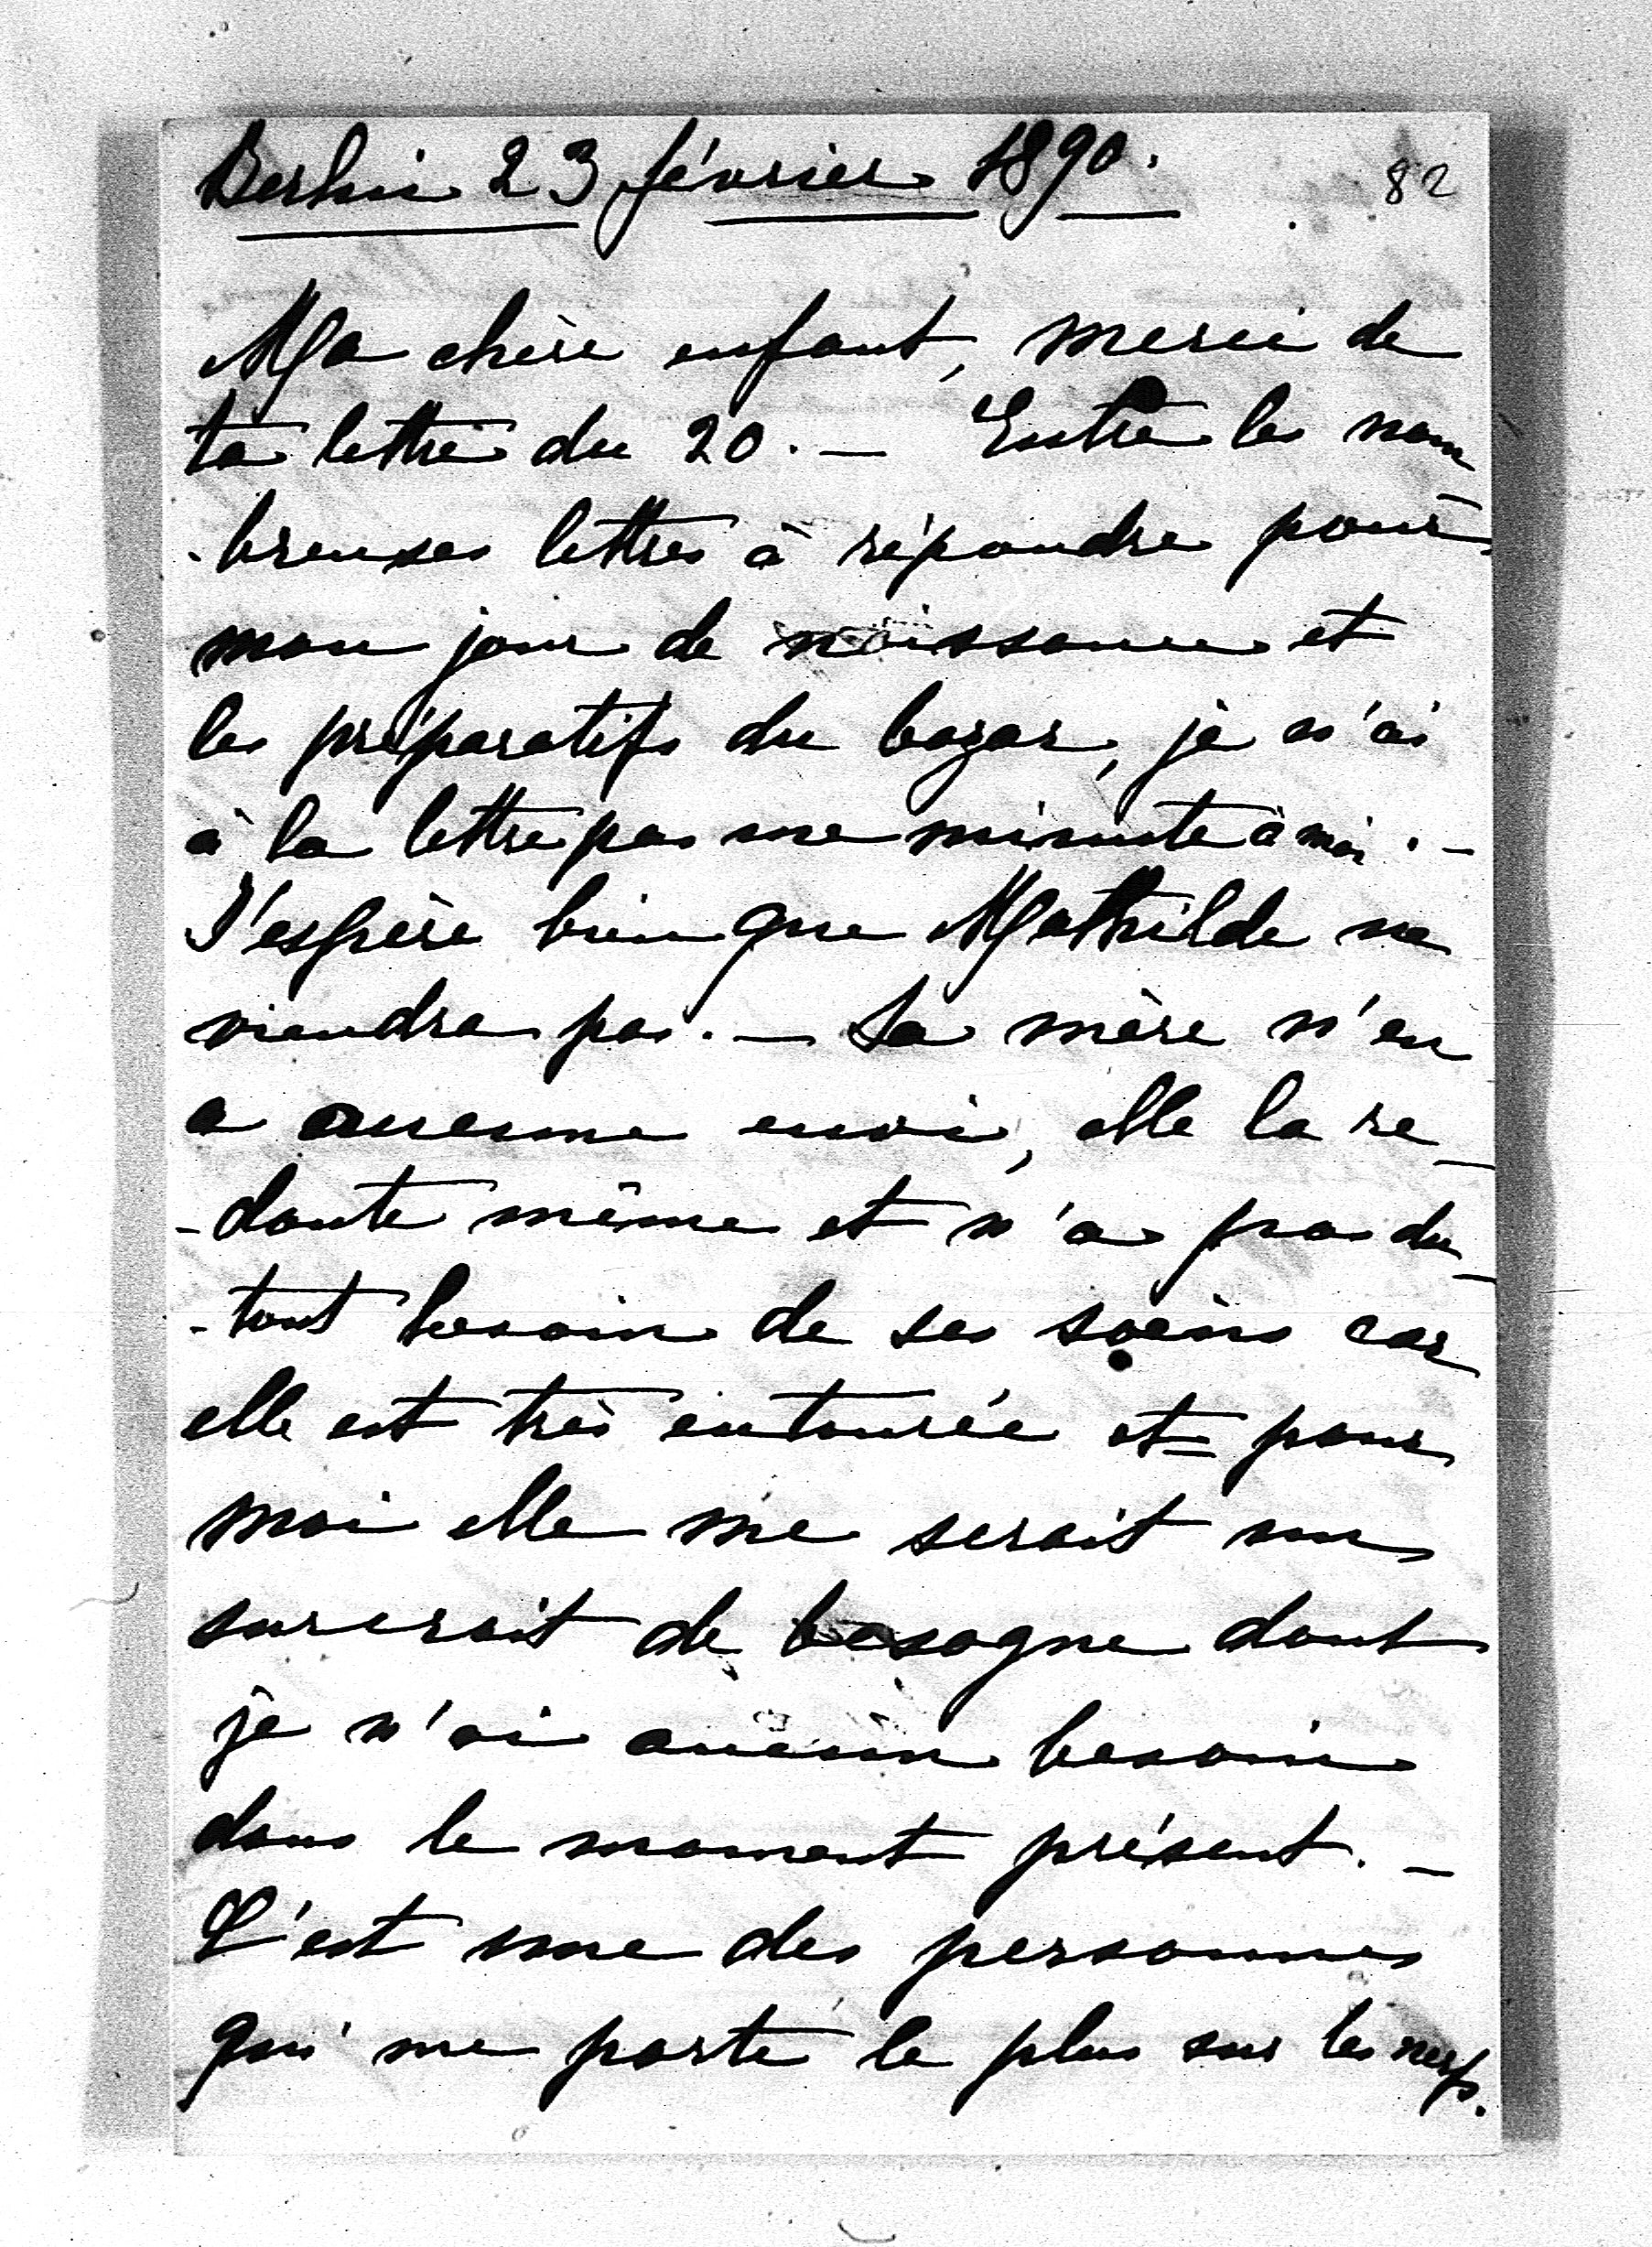 Berlin 23 février 1890.
82
Ma chère enfant, merci de
ta lettre du 20. — Entre les nom
-breuses lettres à répondre pour
mon jour de naissance et
les préparatifs du bazar, je n'ai
à la lettre pas une minute à moi. —
J'espère bien que Mathilde ne
viendra pas. — Sa mère n'en
a aucune envie, elle la re_
-doute même et n'a pas du_
-tout besoin de ses soins car
elle est très entourée et pour
moi elle me serait un
surcroit de besogne dont
je n'ai aucun besoin
dans le moment présent. —
C'est une des personnes
qui me porte le plus sur les nerfs.